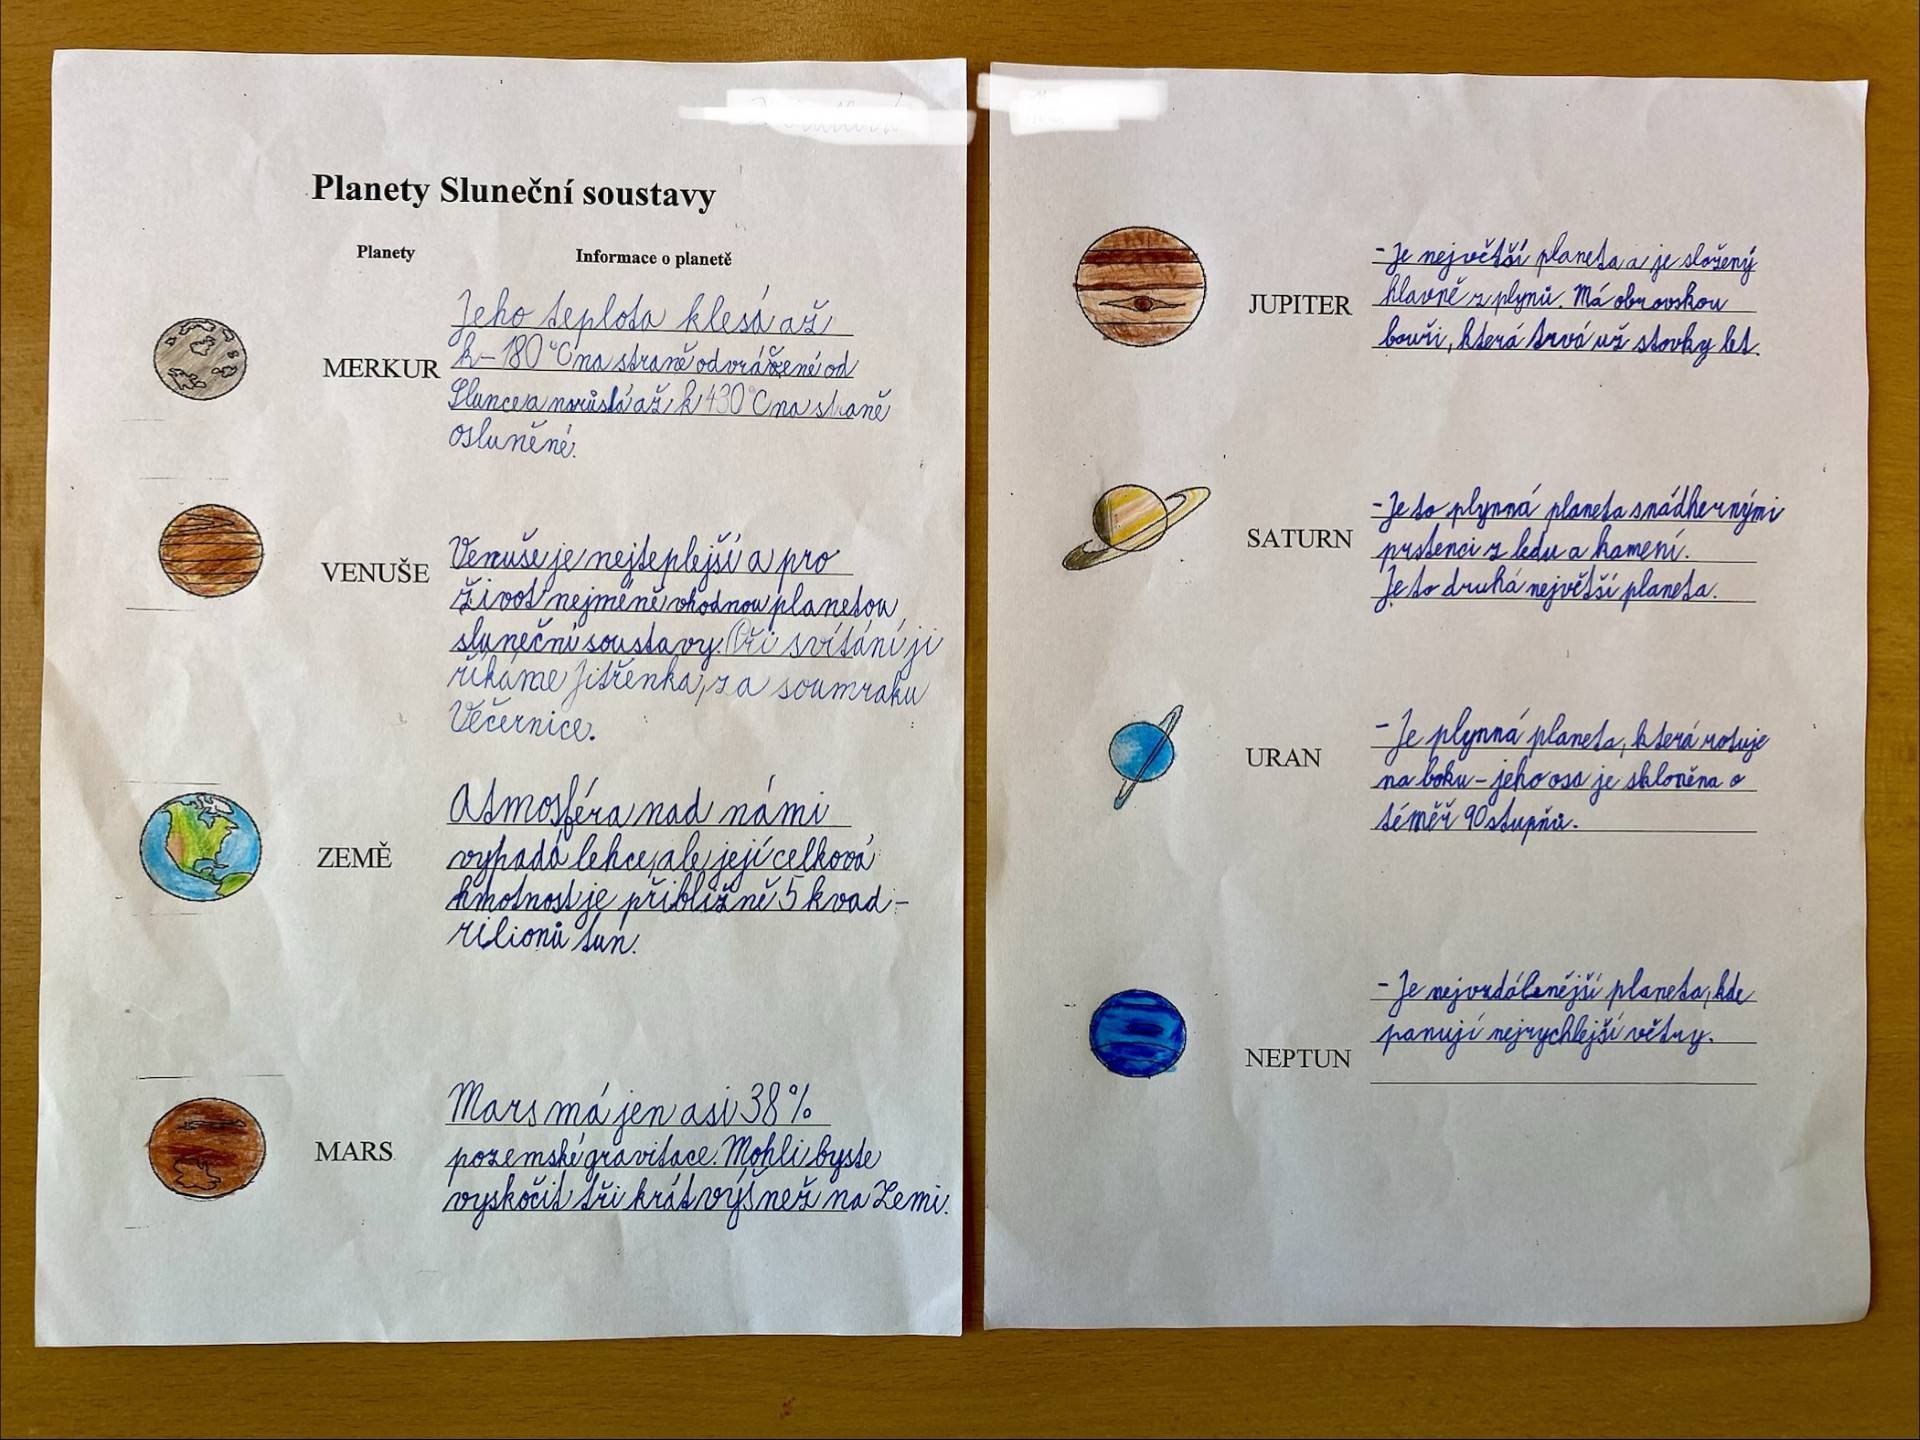 Planety Sluneční soustavy
Planety
Informace o planetě
MERKUR
Jeho teplota klesá až
k -180 °C na straně odvrácené od
Slunce a narůstá až k 430 °C na straně
osluněné.
VENUŠE
Venuše je nejteplejší a pro
život nejméně vhodnou planetou
sluneční soustavy. Při svítání ji
říkáme Jitřenka, za soumraku
Večernice.
ZEMĚ
Atmosféra nad námi
vypadá lehce, ale její celková
hmotnost je přibližně 5 kvad-
rilionů tun.
MARS
Mars má jen asi 38 %
pozemské gravitace. Mohli byste
vyskočit tři krát výš než na Zemi.
JUPITER
- Je největší planeta a je složený
hlavně z plynů. Má obrovskou
bouři, která trvá už stovky let.
SATURN
- Je to plynná planeta s nádhernými
prstenci z ledu a kamení.
Je to druhá největší planeta.
URAN
- Je plynná planeta, která rotuje
na boku - jeho osa je skloněna o
téměř 90 stupňů.
NEPTUN
- Je nejvzdálenější planeta, kde
panují nejrychlejší větry.